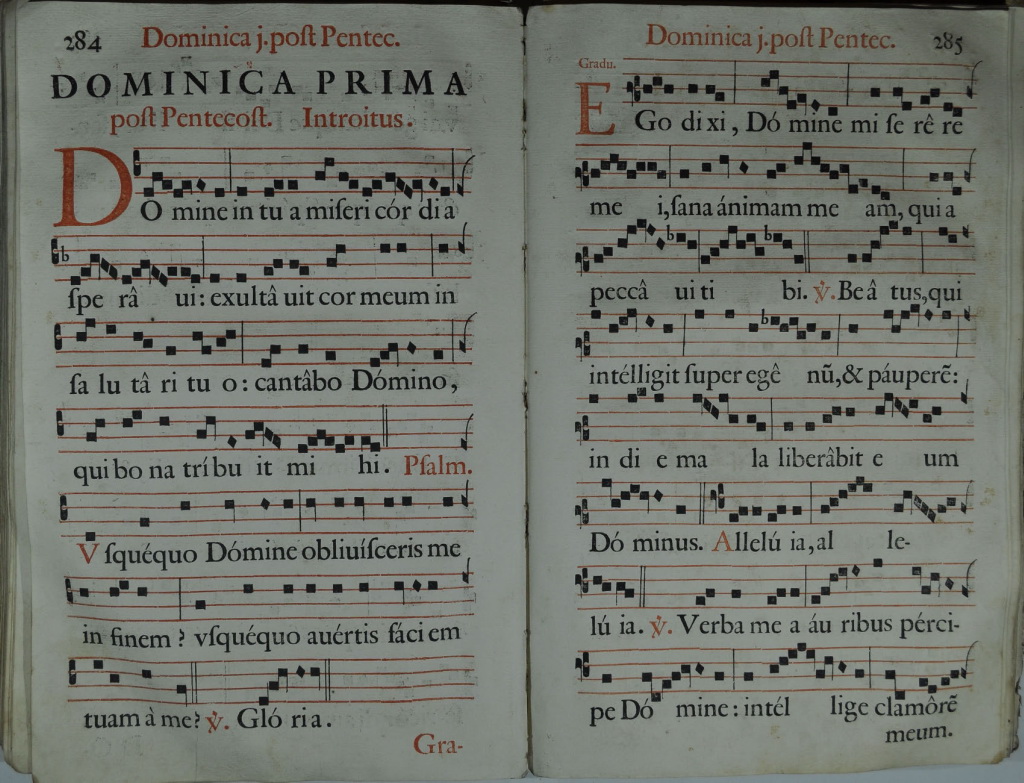 284 Dominica j.poſt Pentec.
DOMINICA PRIMA
poſt Pentecoſt. Introitus.
DO mine in tu a miſeri cór di a
ſpe râ ui: exultâ uit cor meum in
ſa lu tâ ri tu o: cantâbo Dómino,
qui bo na trí bu it mi hi. Pſalm.
Vſquéquo Dómine obliuíſceris me
in finem? vſquéquo auértis fáci em
tuam à me? ℣. Gló ria.
Gra-
Dominica j.poſt Pentec. 285
Gradu.
EGo dixi, Dó mine mi ſe rê re
me i, ſana ánimam me am, qui a
peccâ ui ti bi. ℣. Be â tus, qui
intélligit ſuper egê nũ, & páuperẽ:
in di e ma la liberâbit e um
Dó minus. Allelú ia, al le-
lú ia. ℣. Verba me a áu ribus pérci-
pe Dó mine: intél lige clamôrẽ
meum.